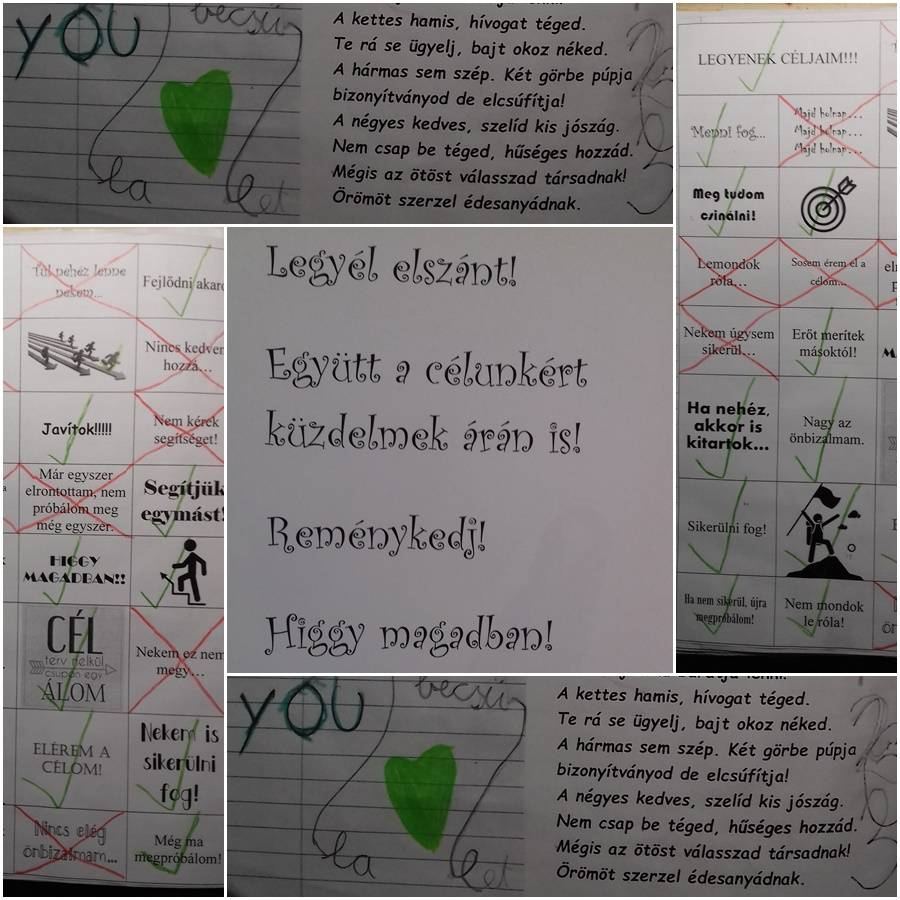 YOU
becsü
la
let
A kettes hamis, hívogat téged.
Te rá se ügyelj, bajt okoz néked.
A hármas sem szép. Két görbe púpja
bizonyítványod de elcsúfítja!
A négyes kedves, szelíd kis jószág.
Nem csap be téged, hűséges hozzád.
Mégis az ötöst válasszad társadnak!
Örömöt szerzel édesanyádnak.
LEGYENEK CÉLJAIM!!!
Menni fog...
Majd holnap...
Majd holnap...
Majd holnap...
Meg tudom
csinálni!
Lemondok
róla...
Sosem érem el a
célom...
Nekem úgysem
sikerül...
Erőt merítek
másoktól!
Ha nehéz,
akkor is
kitartok...
Nagy az
önbizalmam.
Sikerülni fog!
Ha nem sikerül, újra
megpróbálom!
Nem mondok
le róla!
Túl nehéz lenne
nekem...
Fejlődni akaro
Nincs kedvem
hozzá...
Javítok!!!!!
Nem kérek
segítséget!
Már egyszer
elrontottam, nem
próbálom meg
még egyszer.
Segítjük
egymást!
HIGGY
MAGADBAN!!
CÉL
terv nélkül
csupán egy
ÁLOM
Nekem ez nem
megy...
ELÉREM A
CÉLOM!
Nekem is
sikerülni
fog!
Nincs elég
önbizalmam...
Még ma
megpróbálom!
Legyél elszánt!
Együtt a célunkért
küzdelmek árán is!
Reménykedj!
Higgy magadban!
YOU
becsü
la
let
A kettes hamis, hívogat téged.
Te rá se ügyelj, bajt okoz néked.
A hármas sem szép. Két görbe púpja
bizonyítványod de elcsúfítja!
A négyes kedves, szelíd kis jószág.
Nem csap be téged, hűséges hozzád.
Mégis az ötöst válasszad társadnak!
Örömöt szerzel édesanyádnak.